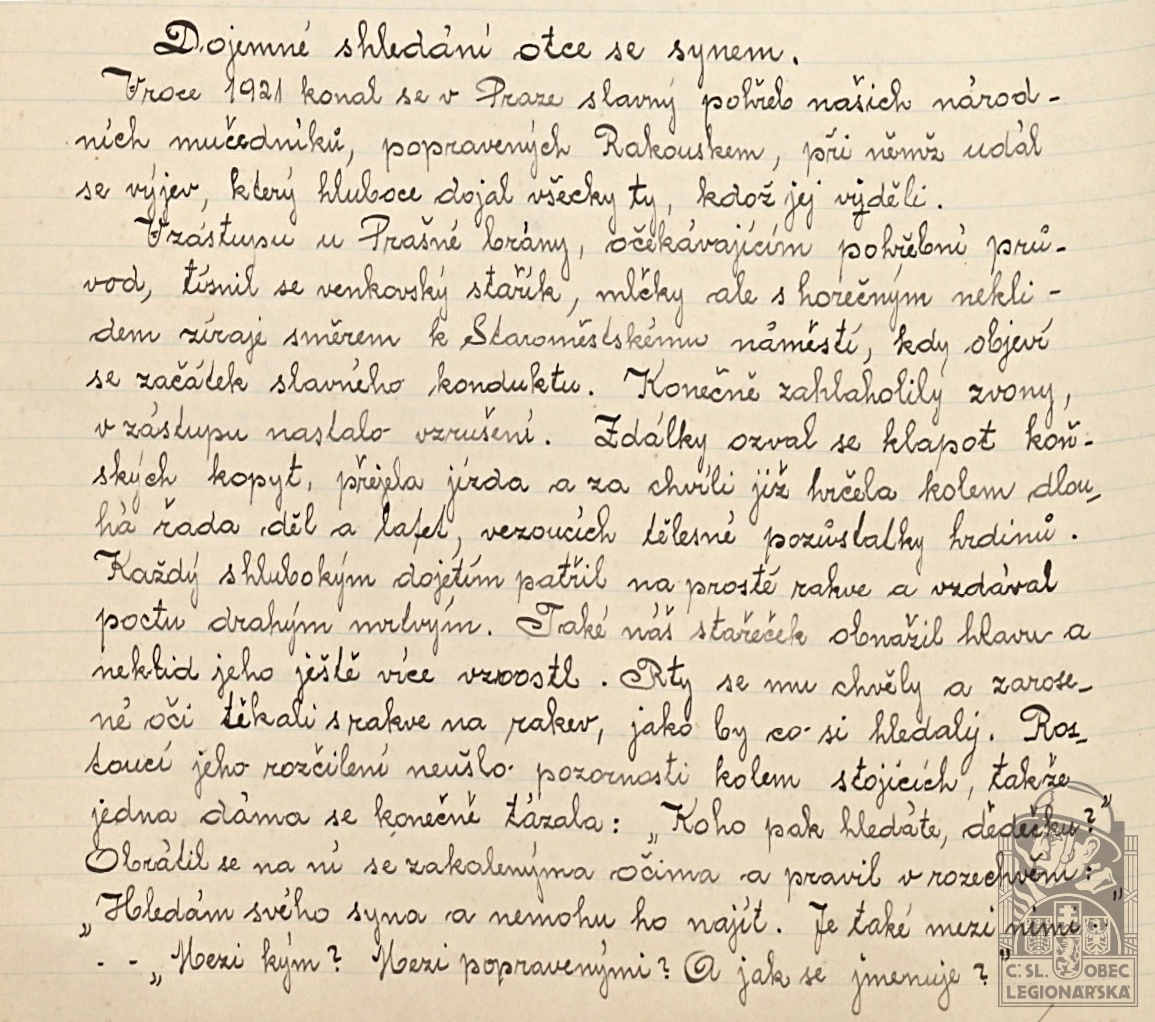 Dojemné shledání otce se synem.
V roce 1921 konal se v Praze slavný pohřeb našich národ-
ních mučedníků, popravených Rakouskem, při němž udál
se výjev, který hluboce dojal všecky ty, kdož jej výděli.
V zástupu u Prašné brány, očekávajícím pohřební prů-
vod, tísnil se venkovský stařík, mlčky ale s horečným nekli-
dem zíraje směrem k Staroměstskému náměstí, kdy objeví
se začátek slavného konduktu. Konečně zahlaholilý zvony,
v zástupu nastalo vzrušení. Zdálky ozval se klapot koň-
ských kopyt, přejela jízda a za chvíli již hrčela kolem dlou-
há řada děl a lafet, vezoucích tělesné pozůstatky hrdinů.
Každý s hlubokým dojetím patřil na prosté rakve a vzdával
poctu drahým mrtvým. Také náš stařeček obnažil hlavu a
neklid jeho ještě více vzrostl. Rty se mu chvěly a zarose-
né oči těkali s rakve na rakev, jako by co si hledalý. Ros-
toucí jeho rozčilení neušlo pozornosti kolem stojících, takže
jedna dáma se konečně tázala: „Koho pak hledáte, dědečku?"
Obrátil se na ní se zakalenýma očima a pravil v rozechvění:
„Hledám svého syna a nemohu ho najít. Je také mezi nimi -"
- - „Mezi kým? Mezi popravenými? A jak se jmenuje?"
Č. SL. OBEC
LEGIONÁŘSKÁ